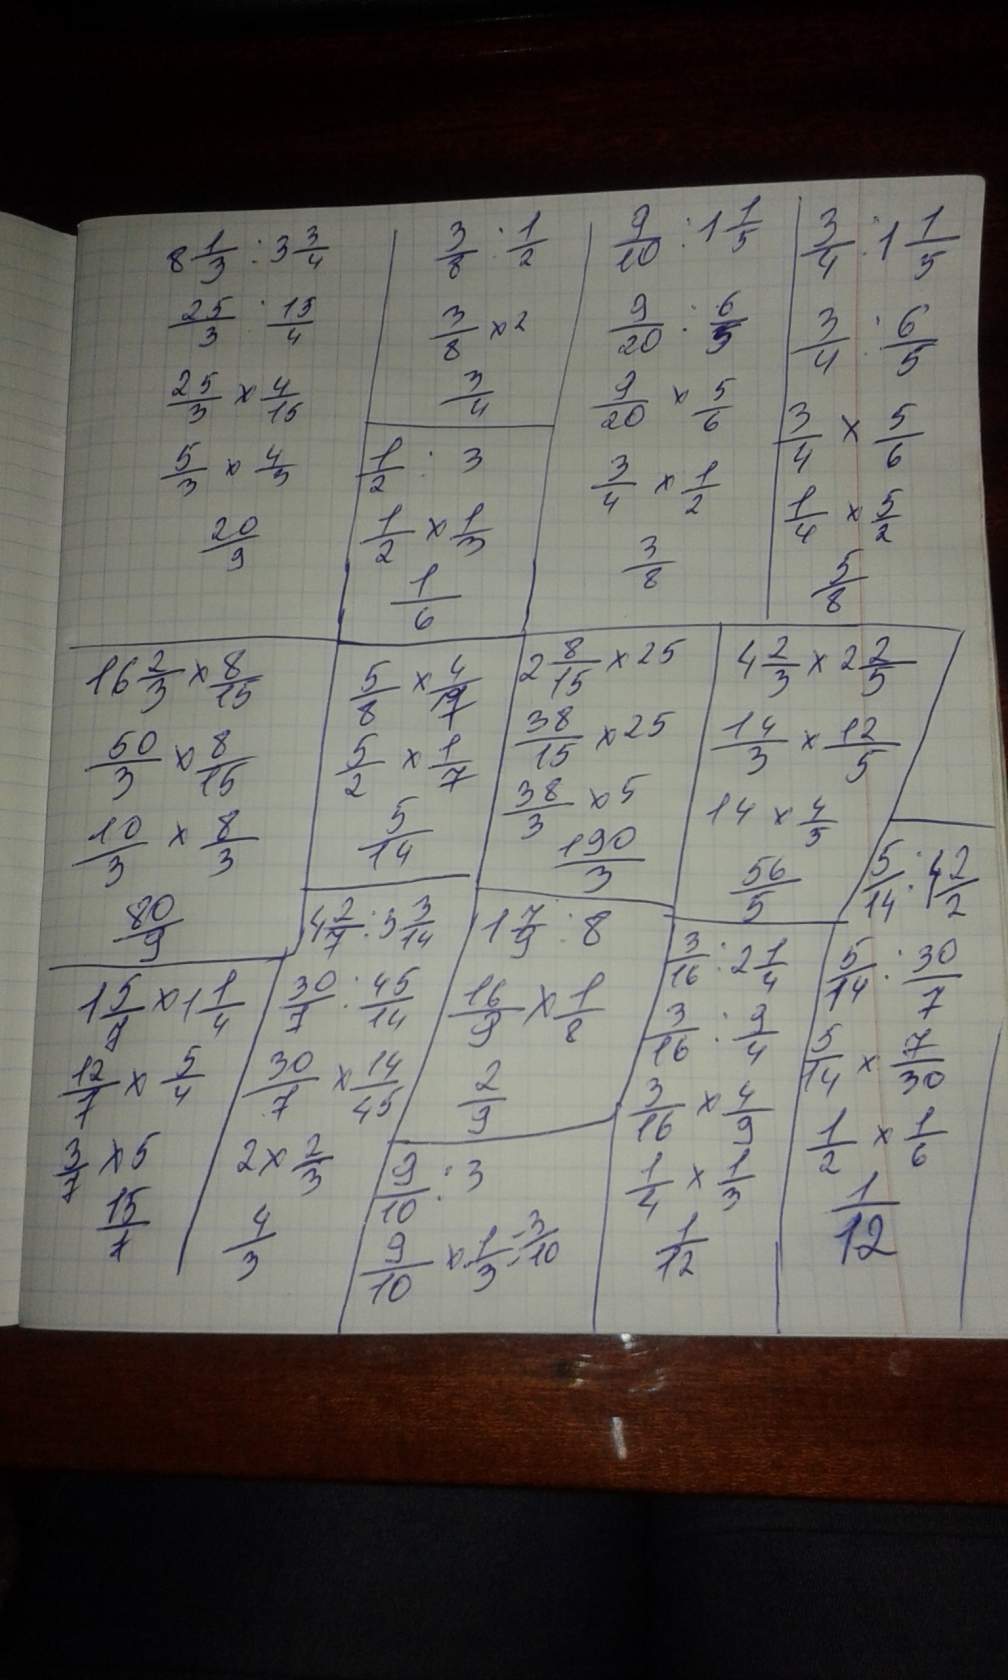 8 1/3 : 3 3/4
25/3 : 15/4
25/3 × 4/15
5/3 × 4/3
20/9
3/8 : 1/2
3/8 × 2
3/4
1/2 : 3
1/2 × 1/3
1/6
9/10 : 1 1/5
9/20 : 6/5
9/20 × 5/6
3/4 × 1/2
3/8
3/4 : 1 1/5
3/4 : 6/5
3/4 × 5/6
1/4 × 5/2
5/8
16 2/3 × 8/15
50/3 × 8/15
10/3 × 8/3
80/9
5/8 × 4/7
5/2 × 1/7
5/14
2 8/15 × 25
38/15 × 25
38/3 × 5
190/3
4 2/3 × 2 2/5
14/3 × 12/5
14 × 4/5
56/5
1 5/7 × 1 1/4
12/7 × 5/4
3/7 × 5
15/7
4 2/7 : 3 3/14
30/7 : 45/14
30/7 × 14/45
2 × 2/3
4/3
1 7/9 : 8
16/9 × 1/8
2/9
9/10 : 3
9/10 × 1/3 = 3/10
3/16 : 2 1/4
3/16 : 9/4
3/16 × 4/9
1/4 × 1/3
1/12
5/14 : 4 2/2
5/14 : 30/7
5/14 × 7/30
1/2 × 1/6
1/12